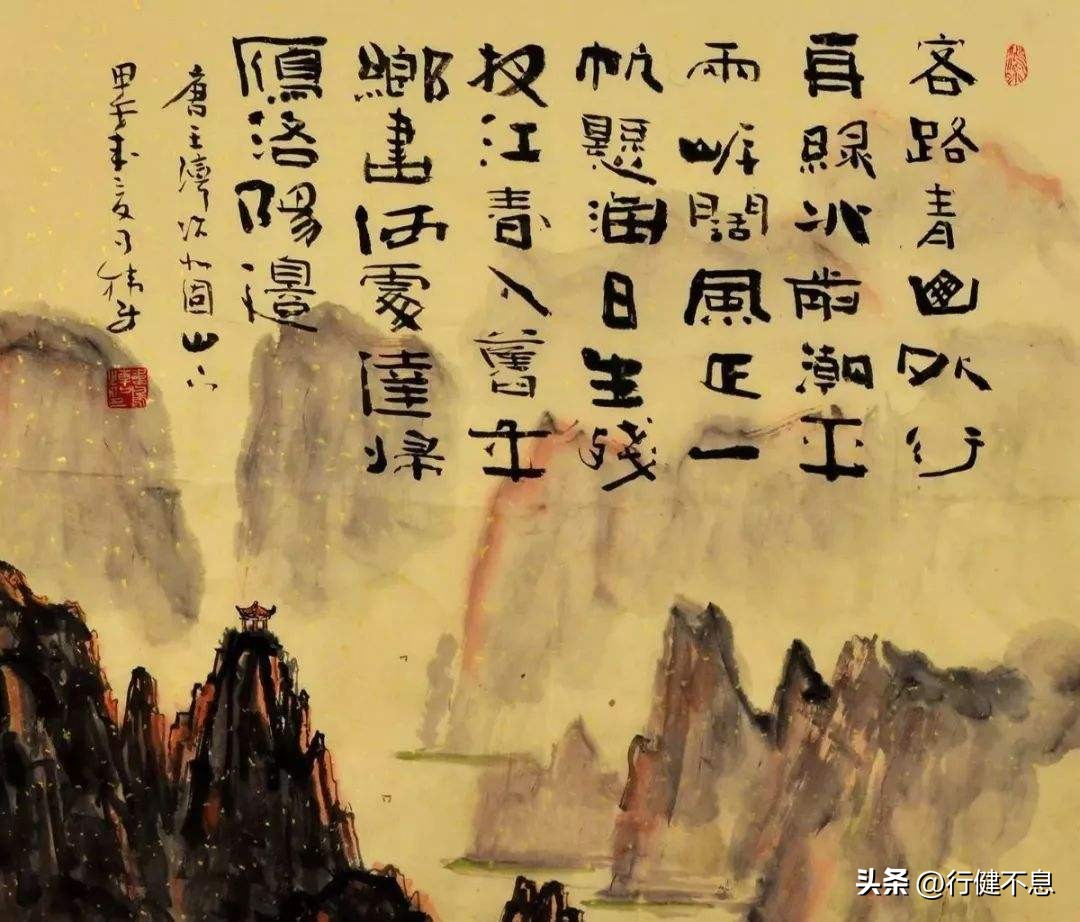 客路青山外行
舟綠水前潮平
兩岸闊風正一
帆懸海日生殘
夜江春入舊年
鄉書何處達歸
雁洛陽邊
唐王灣次北固山下
甲午
头条 @行健不息